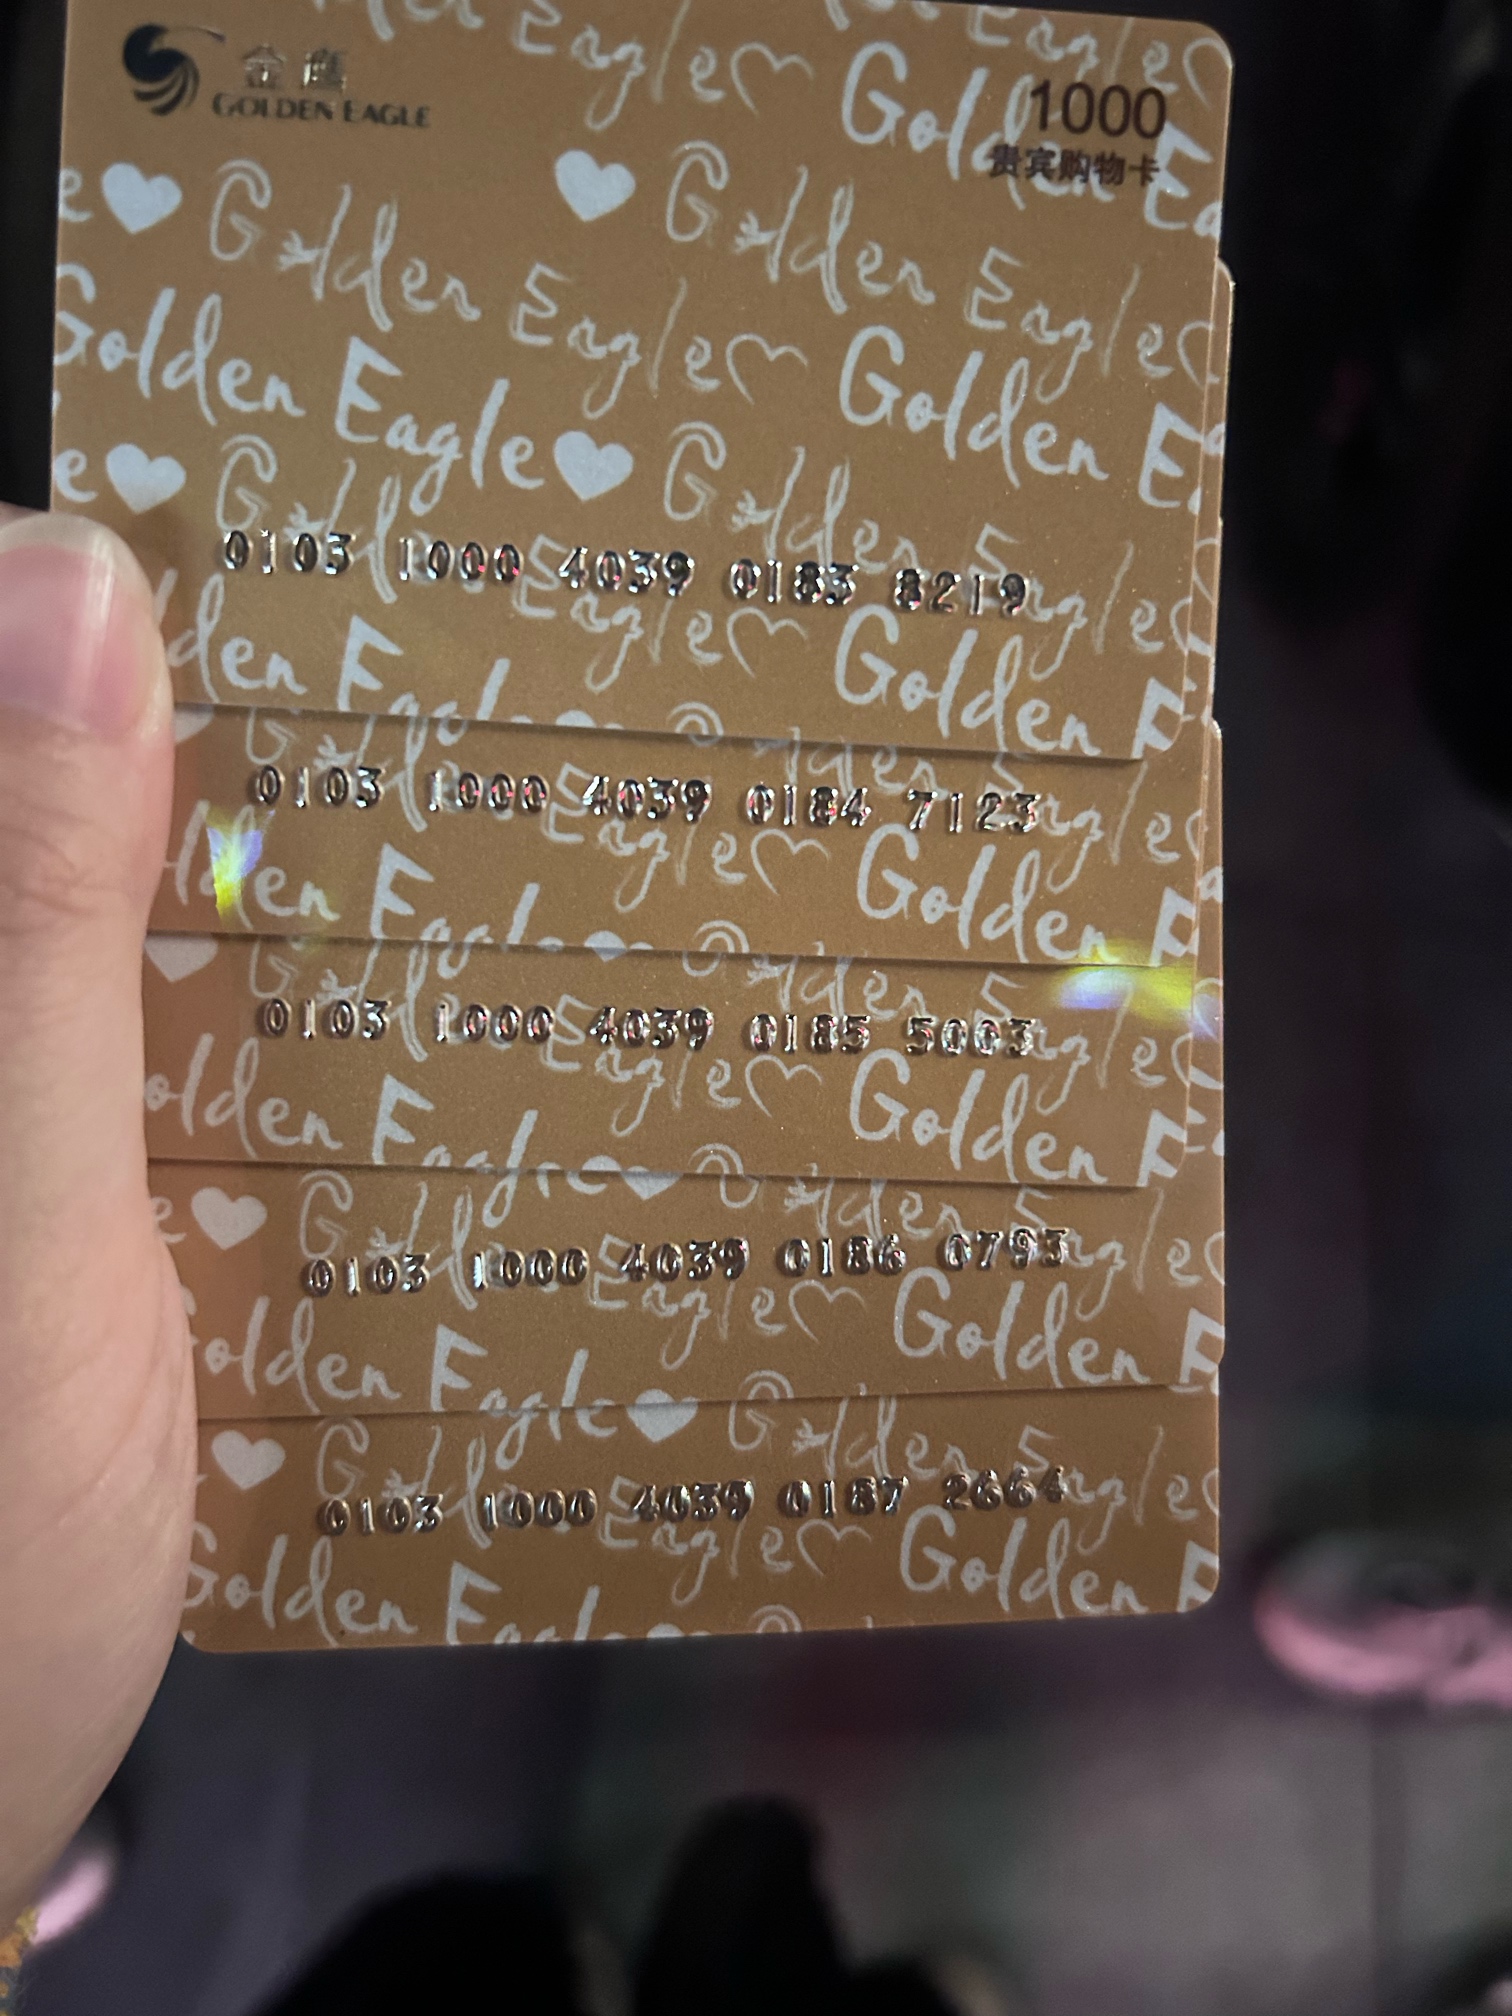 金鹰
GOLDEN EAGLE
1000
贵宾购物卡
Eagle Eagle
Golden Ea
e Golden Eagle Golden Eagle
Golden Eagle Golden Ea
e Golden Eagle Golden Eagle
0103 1000 4039 0183 8219
lden Eagle Golden E
0103 1000 4039 0184 7123
lden Eagle Golden E
0103 1000 4039 0185 5003
olden Eagle Golden E
0103 1000 4039 0186 0793
olden Eagle Golden E
0103 1000 4039 0187 2664
Golden Eagle Golden E